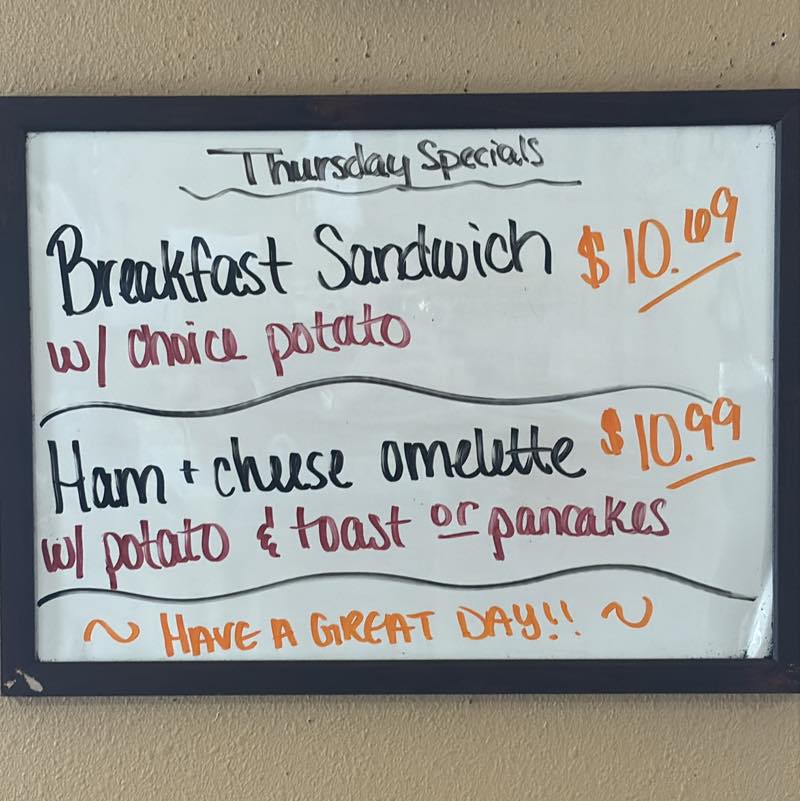 Thursday Specials
Breakfast Sandwich $10.69
w/ choice potato
Ham + cheese omelette $10.99
w/ potato & toast or pancakes
~ HAVE A GREAT DAY!! ~